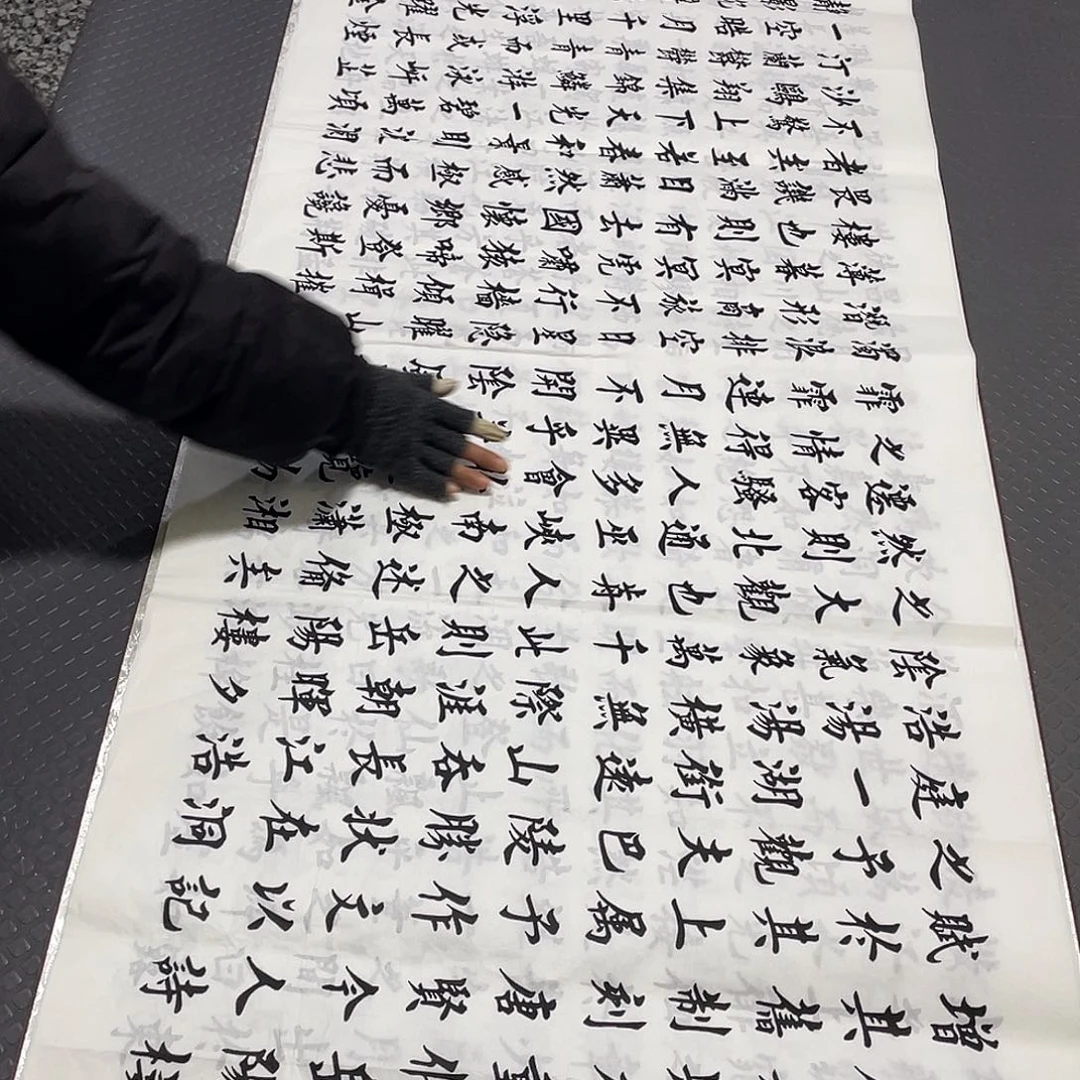 重作岳陽樓
增其舊制刻唐賢今人詩
賦於其上屬予作文以記
之予觀夫巴陵勝狀在洞
庭一湖銜遠山吞長江浩
浩湯湯橫無際涯朝暉夕
陰氣象萬千此則岳陽樓
之大觀也前人之述備矣
然則北通巫峽南極瀟湘
遷客騷人多會覽
之情得無異乎
霏霏連月不開陰
濁浪排空日星隱曜山
潛形商旅不行檣傾楫摧
薄暮冥冥虎嘯猿啼登斯
樓也則有去國懷鄉憂讒
畏譏滿目蕭然感極而悲
者矣至若春和景明波瀾
不驚上下天光一碧萬頃
沙鷗翔集錦鱗游泳岸芷
汀蘭郁郁青青而或長煙
一空皓月千里浮光躍金